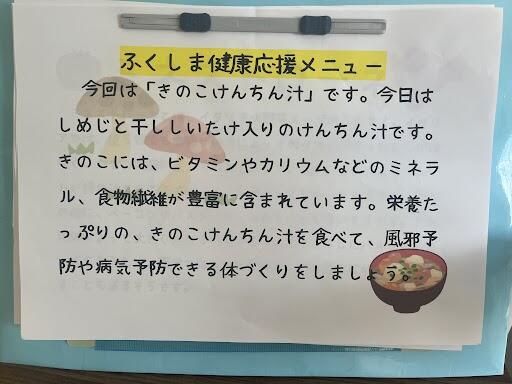 ふくしま健康応援メニュー
今回は「きのこけんちん汁」です。今日は
しめじと干ししいたけ入りのけんちん汁です。
きのこには、ビタミンやカリウムなどのミネラ
ル、食物繊維が豊富に含まれています。栄養た
っぷりの、きのこけんちん汁を食べて、風邪予
防や病気予防できる体づくりをしましょう。